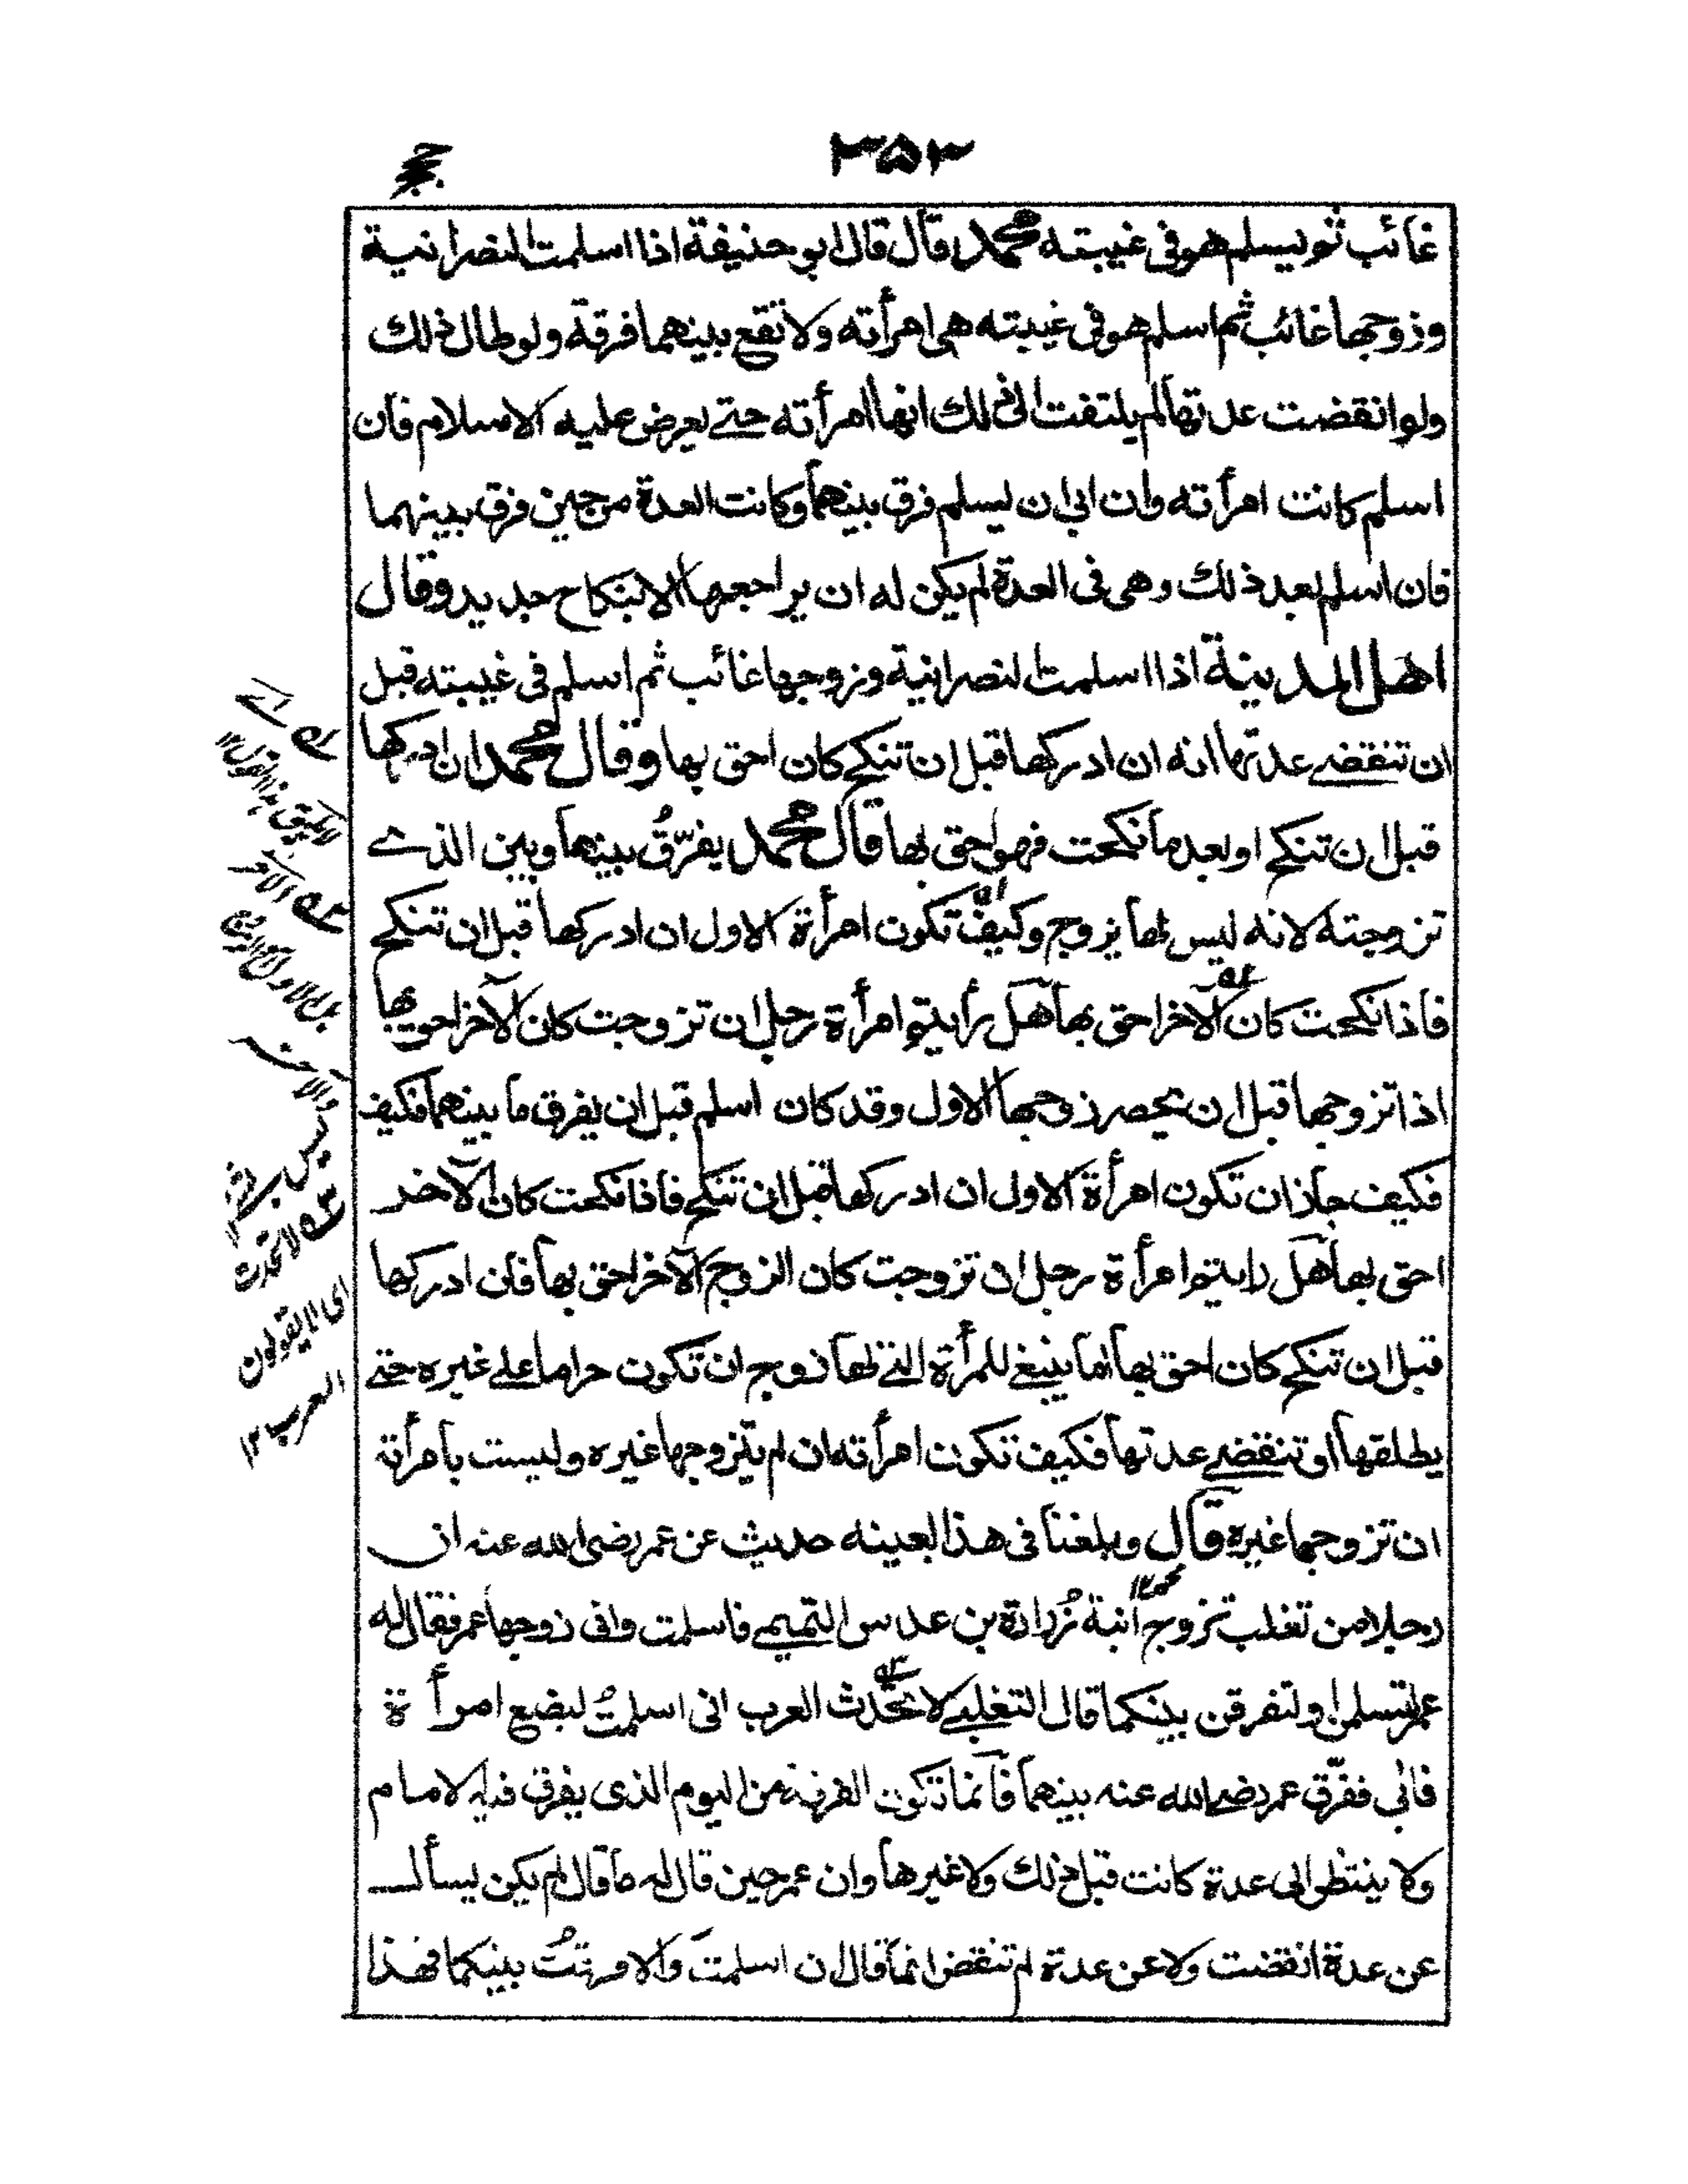 ٣٥٣
غائب ثم يسلم هو فى غيبته محمد قال قال ابو حنيفة اذا اسلمت النصرانية
وزوجها غائب ثم اسلم هو فى غيبته هى امرأته ولا تقع بينهما فرقة ولو طال ذلك
ولو انقضت عدتها لم يلتفت الى ذلك انها امرأته حتے يعرض عليه الاسلام فان
اسلم كانت امرأته وان ابى ان يسلم فرق بينهما وكانت العدة من حين فرق بينهما
فان اسلم بعد ذلك وهى فى العدة لم يكن له ان يراجعها الا بنكاح جديد وقال
اهل المدينة اذا اسلمت النصرانية وزوجها غائب ثم اسلم فى غيبته قبل
ان تنقضے عدتها انه ان ادركها قبل ان تنكح كان احق بها وقال محمد ان ادركها
قبل ان تنكح او بعد ما نكحت فهو احق بها قال محمد يفرّقُ بينهما وبين الذے
تزوجته لانه ليس لها بزوج وكيف تكون امرأة الاول ان ادركها قبل ان تنكح
فاذا نكحت كان الآخر احق بها هل رأيتم امرأة رجل ان تزوجت كان الآخر احق بها
اذا تزوجها قبل ان يحضر زوجها الاول وقد كان اسلم قبل ان يفرق ما بينهما فكيف
فكيف جاز ان تكون امرأة الاول ان ادركها قبل ان تنكح فاذا نكحت كان الآخر
احق بها هل رايتم امرأة رجل ان تزوجت كان الزوج الآخر احق بها فان ادركها
قبل ان تنكح كان احق بها انما ينبغے للمرأة التے لها زوج ان تكون حراما علے غيره حتے
يطلقها او تنقضے عدتها فكيف تكون امرأته ان لم يتزوجها غيره وليست بامرأته
ان تزوجها غيره قال وبلغنا فى هذا بعينه حديث عن عمر رضى الله عنه ان
رجلا من تغلب تزوج ابنة زُرارة بن عدس التميمے فاسلمت واتى زوجها عمر فقال له
عمر لتسلمن او لتفرقن بينكما قال التغلبے لا تحّدث العرب انى اسلمتُ لبضع امرأة
فابى ففرّق عمر رضے الله عنه بينهما فانما تكون الفرقة من اليوم الذى يفرق فيه الامام
ولا ينتظر الى عدة كانت قبل ذلك ولا غيرها وان عمر حين قال له ما قال لم يكن يسأل
عن عدة انقضت ولا عن عدة لم تنقض انما قال ان اسلمتَ والا فرقتُ بينكما فهذا
لا تحدث
اى لا يقولون
العرب ١٢